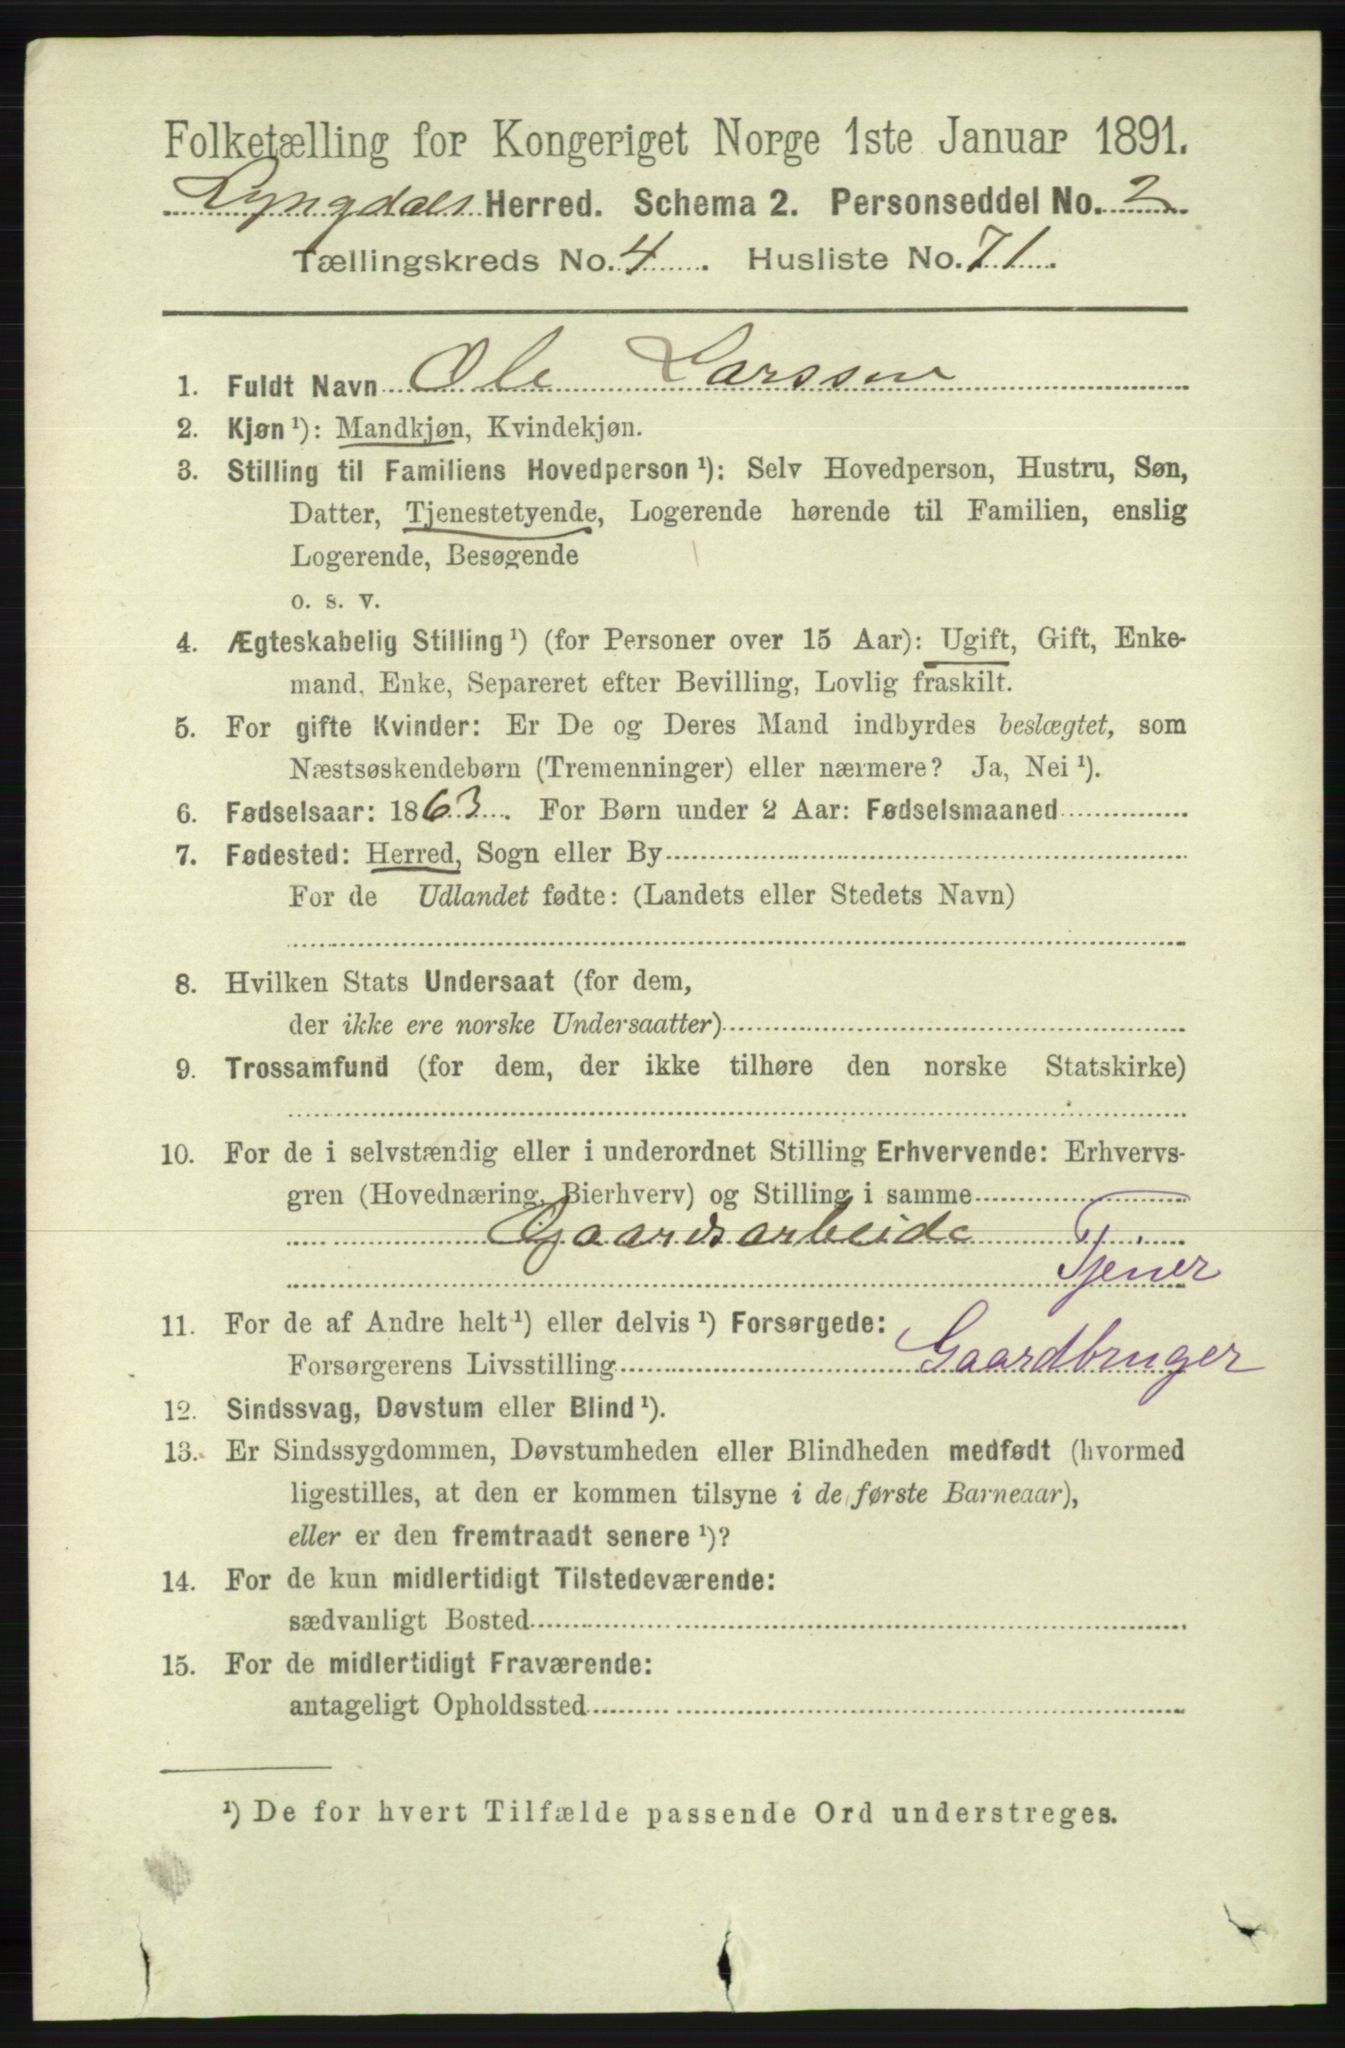 Folketælling for Kongeriget Norge 1ste Januar 1891.
Lyngdals Herred. Schema 2. Personseddel No. 2
Tællingskreds No. 4. Husliste No. 71.
1. Fuldt Navn Ole Larssen
2. Kjøn ¹): Mandkjøn, Kvindekjøn.
3. Stilling til Familiens Hovedperson ¹): Selv Hovedperson, Hustru, Søn,
Datter, Tjenestetyende, Logerende hørende til Familien, enslig
Logerende, Besøgende
o. s. v.
4. Ægteskabelig Stilling ¹) (for Personer over 15 Aar): Ugift, Gift, Enke-
mand, Enke, Separeret efter Bevilling, Lovlig fraskilt.
5. For gifte Kvinder: Er De og Deres Mand indbyrdes beslægtet, som
Næstsøskendebørn (Tremenninger) eller nærmere? Ja, Nei ¹).
6. Fødselsaar: 1863. For Børn under 2 Aar: Fødselsmaaned
7. Fødested: Herred, Sogn eller By
For de Udlandet fødte: (Landets eller Stedets Navn)
8. Hvilken Stats Undersaat (for dem,
der ikke ere norske Undersaatter)
9. Trossamfund (for dem, der ikke tilhøre den norske Statskirke)
10. For de i selvstændig eller i underordnet Stilling Erhvervende: Erhvervs-
gren (Hovednæring, Bierhverv) og Stilling i samme
Gaardsarbeide
Tjener
11. For de af Andre helt ¹) eller delvis ¹) Forsørgede:
Forsørgerens Livsstilling Gaardbruger
12. Sindssvag, Døvstum eller Blind ¹).
13. Er Sindssygdommen, Døvstumheden eller Blindheden medfødt (hvormed
ligestilles, at den er kommen tilsyne i de første Barneaar),
eller er den fremtraadt senere ¹)?
14. For de kun midlertidigt Tilstedeværende:
sædvanligt Bosted
15. For de midlertidigt Fraværende:
antageligt Opholdssted
¹) De for hvert Tilfælde passende Ord understreges.